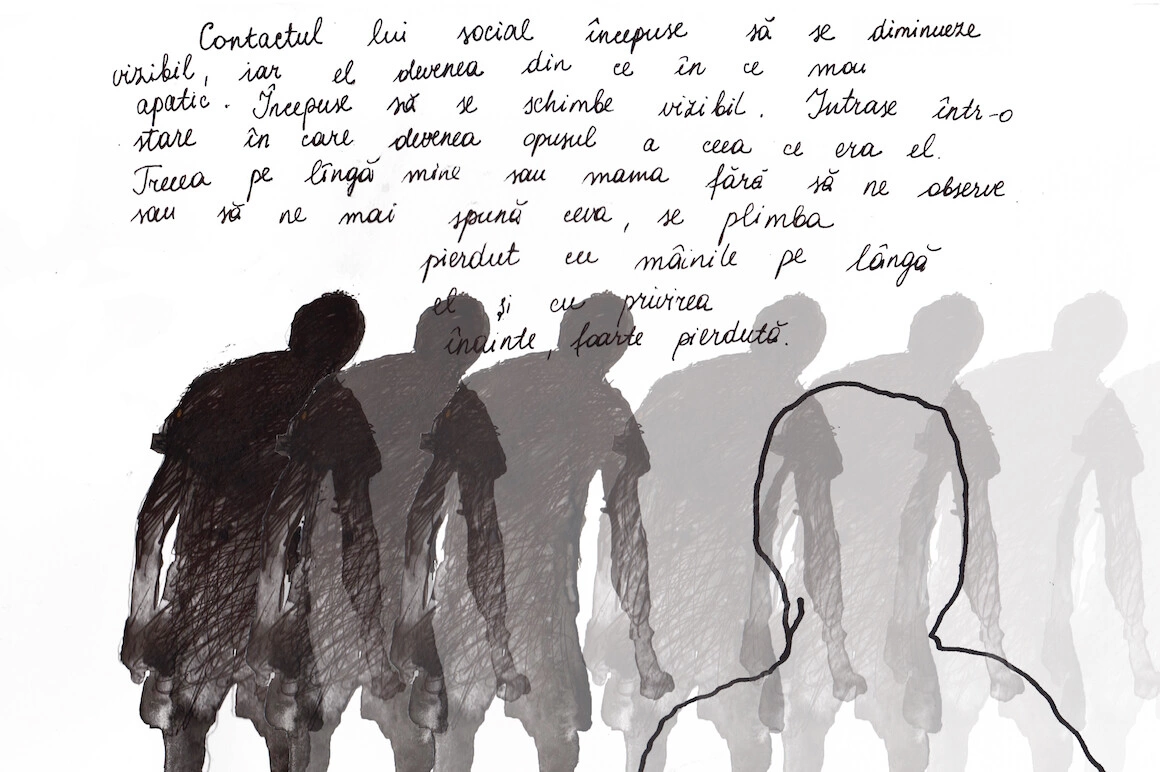 Contactul lui social începuse să se diminueze
vizibil, iar el devenea din ce în ce mai
apatic. Începuse să se schimbe vizibil. Intrase într-o
stare în care devenea opusul a ceea ce era el.
Trecea pe lîngă mine sau mama fără să ne observe
sau să ne mai spună ceva, se plimba
pierdut cu mâinile pe lângă
el și cu privirea
înainte, foarte pierdută.